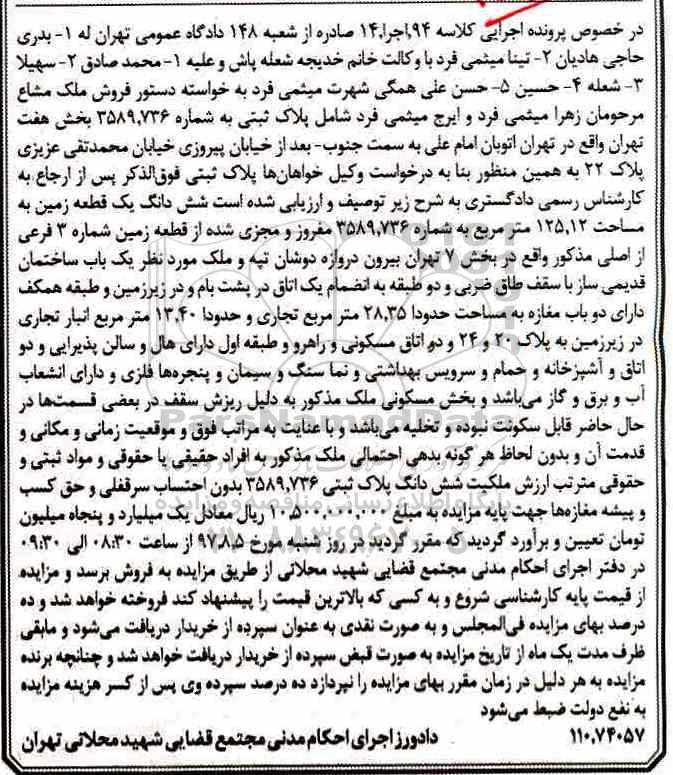 در خصوص پرونده اجرایی کلاسه ۹۴/اجرا/۱۴ صادره از شعبه ۱۴۸ دادگاه عمومی تهران له ۱- بدری
حاجی هادیان ۲- تینا میثمی فرد با وکالت خانم خدیجه شعله پاش و علیه ۱- محمد صادق ۲- سهیلا
۳- شعله ۴- حسین ۵- حسن علی همگی شهرت میثمی فرد به خواسته دستور فروش ملک مشاع
مرحومان زهرا میثمی فرد و ایرج میثمی فرد شامل پلاک ثبتی به شماره ۳۵۸۹,۷۳۶ بخش هفت
تهران واقع در تهران اتوبان امام علی به سمت جنوب- بعد از خیابان پیروزی خیابان محمدتقی عزیزی
پلاک ۲۲ به همین منظور بنا به درخواست وکیل خواهان‌ها پلاک ثبتی فوق‌الذکر پس از ارجاع به
کارشناس رسمی دادگستری به شرح زیر توصیف و ارزیابی شده است شش دانگ یک قطعه زمین به
مساحت ۱۲۵,۱۲ متر مربع به شماره ۳۵۸۹,۷۳۶ مفروز و مجزی شده از قطعه زمین شماره ۳ فرعی
از اصلی مذکور واقع در بخش ۷ تهران بیرون دروازه دوشان تپه و ملک مورد نظر یک باب ساختمان
قدیمی ساز با سقف طاق ضربی و دو طبقه به انضمام یک اتاق در پشت بام و در زیرزمین و طبقه همکف
دارای دو باب مغازه به مساحت حدودا ۲۸,۳۵ متر مربع تجاری و حدودا ۱۳,۴۰ متر مربع انبار تجاری
در زیرزمین به پلاک ۲۰ و ۲۴ و دو اتاق مسکونی و راهرو و طبقه اول دارای هال و سالن پذیرایی و دو
اتاق و آشپزخانه و حمام و سرویس بهداشتی و نما سنگ و سیمان و پنجره‌ها فلزی و دارای انشعاب
آب و برق و گاز می‌باشد و بخش مسکونی ملک مذکور به دلیل ریزش سقف در بعضی قسمت‌ها در
حال حاضر قابل سکونت نبوده و تخلیه می‌باشد و با عنایت به مراتب فوق و موقعیت زمانی و مکانی و
قدمت آن و بدون لحاظ هر گونه بدهی احتمالی ملک مذکور به افراد حقیقی یا حقوقی و مواد ثبتی و
حقوقی مترتب ارزش ملکیت شش دانگ پلاک ثبتی ۳۵۸۹,۷۳۶ بدون احتساب سرقفلی و حق کسب
و پیشه مغازه‌ها جهت پایه مزایده به مبلغ ۱۰,۵۰۰,۰۰۰,۰۰۰ ریال معادل یک میلیارد و پنجاه میلیون
تومان تعیین و برآورد گردید که مقرر گردید در روز شنبه مورخ ۹۷,۸,۵ از ساعت ۰۸:۳۰ الی ۰۹:۳۰
در دفتر اجرای احکام مدنی مجتمع قضایی شهید محلاتی از طریق مزایده به فروش برسد و مزایده
از قیمت پایه کارشناسی شروع و به کسی که بالاترین قیمت را پیشنهاد کند فروخته خواهد شد و ده
درصد بهای مزایده فی‌المجلس و به صورت نقدی به عنوان سپرده از خریدار دریافت می‌شود و مابقی
ظرف مدت یک ماه از تاریخ مزایده به صورت قبض سپرده از خریدار دریافت خواهد شد و چنانچه برنده
مزایده به هر دلیل در زمان مقرر بهای مزایده را نپردازد ده درصد سپرده وی پس از کسر هزینه مزایده
به نفع دولت ضبط می‌شود
۱۱۰,۷۴۰۵۷ دادورز اجرای احکام مدنی مجتمع قضایی شهید محلاتی تهران
ParsNamadData